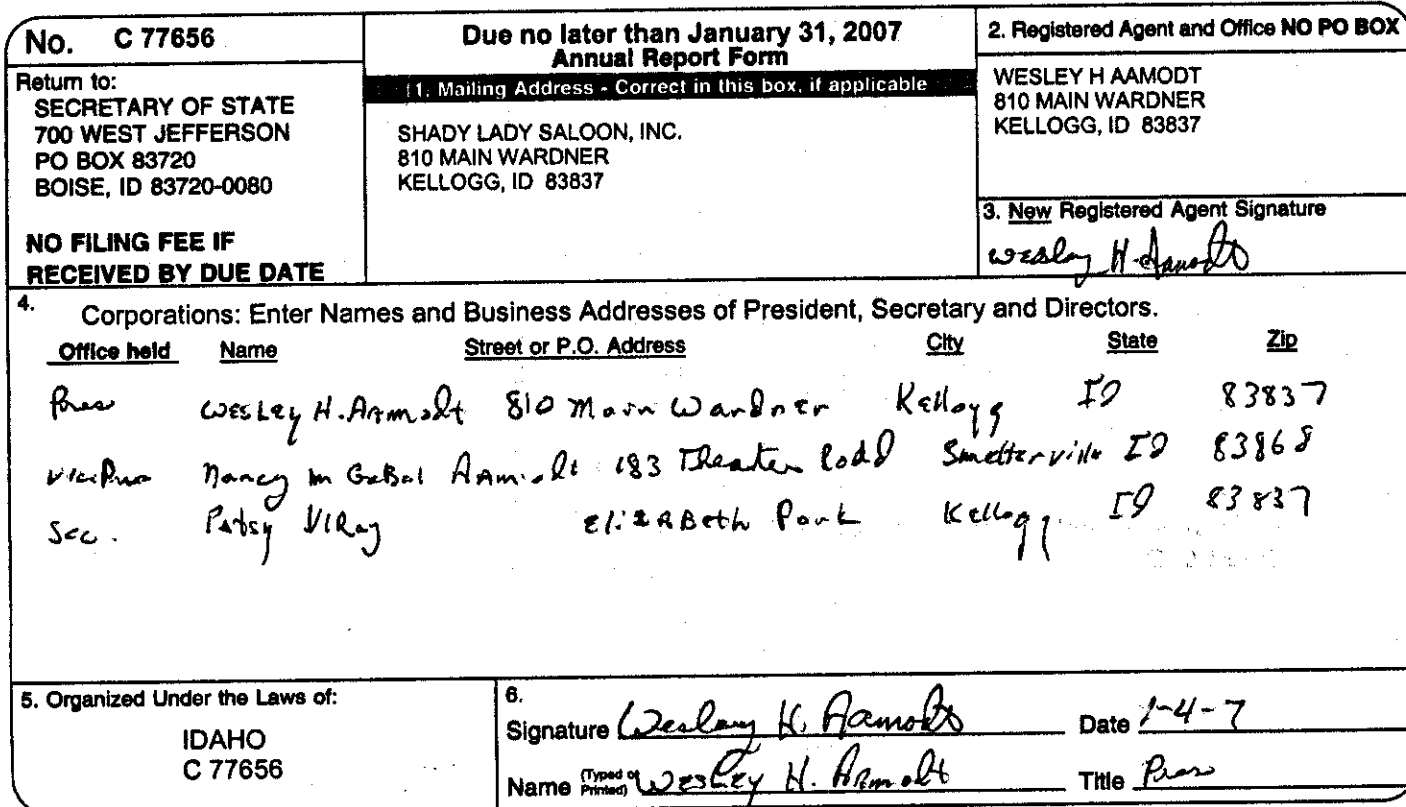 No. C 77656
Return to:
SECRETARY OF STATE
700 WEST JEFFERSON
PO BOX 83720
BOISE, ID 83720-0080
NO FILING FEE IF
RECEIVED BY DUE DATE
Due no later than January 31, 2007
Annual Report Form
1. Mailing Address - Correct in this box, if applicable
SHADY LADY SALOON, INC.
810 MAIN WARDNER
KELLOGG, ID 83837
2. Registered Agent and Office NO PO BOX
WESLEY H AAMODT
810 MAIN WARDNER
KELLOGG, ID 83837
3. New Registered Agent Signature
Wesley H. Aamodt
4. Corporations: Enter Names and Business Addresses of President, Secretary and Directors.
Office held Name Street or P.O. Address City State Zip
Pres Wesley H. Aamodt 810 Main Wardner Kellogg ID 83837
Vice Pres Nancy M Aamodt 183 Theater Smelterville ID 83868
Sec. Patsy Elizabeth Park Kellogg ID 83837
5. Organized Under the Laws of:
IDAHO
C 77656
6.
Signature Wesley H. Aamodt Date 1-4-7
Name (Typed or Printed) Wesley H. Aamodt Title Pres